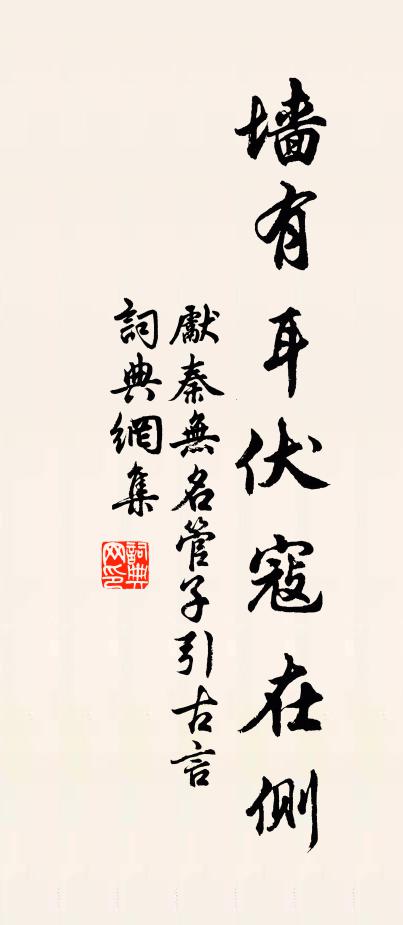 墙有耳伏寇在側
獻秦無名管子引古言
詞典網集
詞典网印